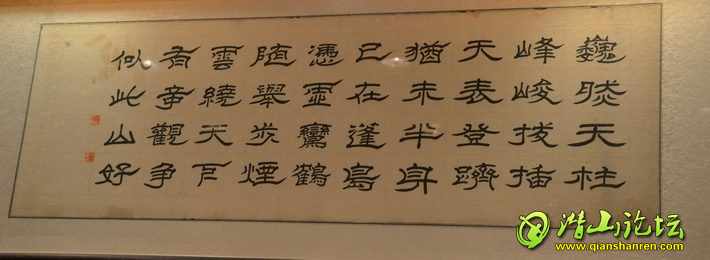 巍然天柱
峰峻拔插
天表登躋
猶未半身
已在蓬島
憑虛鸞鶴
随舉步煙
雲繞天下
有奇觀争
似此山好
潜山论坛
www.qianshanren.com